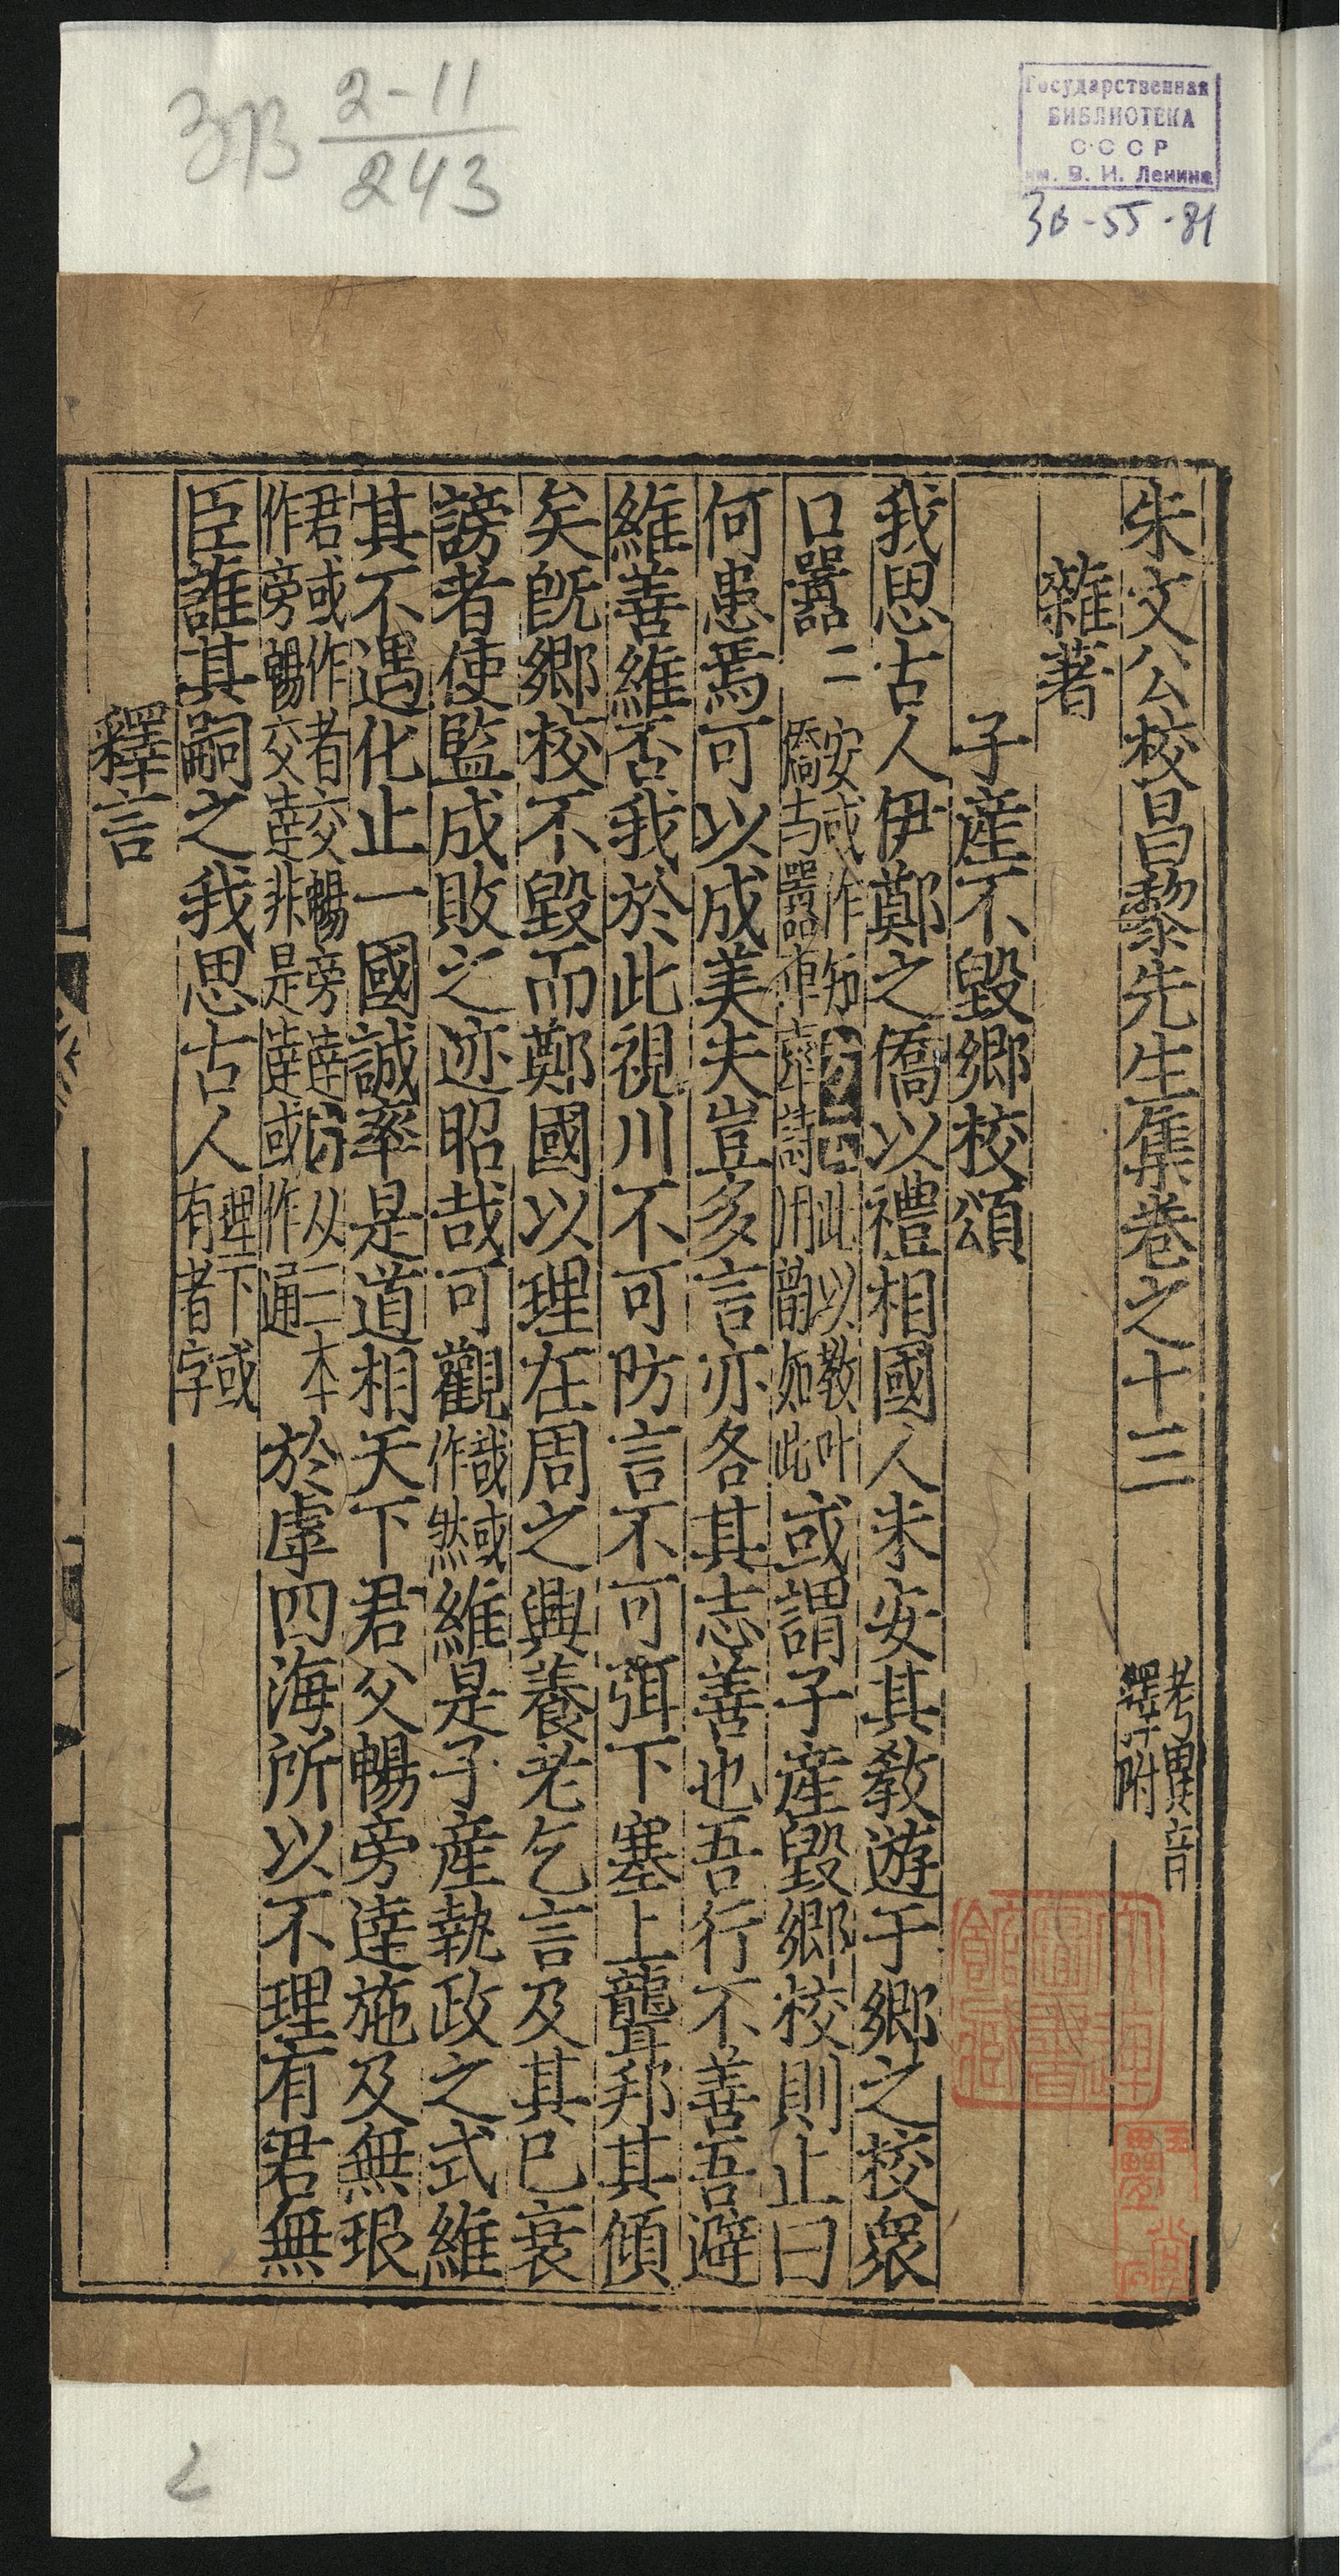 Зв 2-11
243
Государственная
БИБЛИОТЕКА
СССР
им. В. И. Ленина
3в-55-81
朱文公校昌黎先生集卷之十三
考異音
釋附
雜著
子產不毀鄉校頌
我思古人伊鄭之僑以禮相國人未安其教遊于鄉之校衆
口囂二
安或作知
此以教叶
僑与囂車舝詩用韻如此
或謂子產毀鄉校則止曰
何患焉可以成美夫豈多言亦各其志善也吾行不善吾避
維善維否我於此視川不可防言不可弭下塞上聾邦其傾
矣旣鄉校不毀而鄭國以理在周之興養老乞言及其已衰
謗者使監成敗之迹昭哉可觀
哉或
作然
維是子產執政之式維
其不遇化止一國誠率是道相天下君父暢旁達施及無垠
君或作者交暢旁達方从三本
作旁暢交達非是達或作通
於虖四海所以不理有君無
臣誰其嗣之我思古人
理下或
有者字
釋言
2